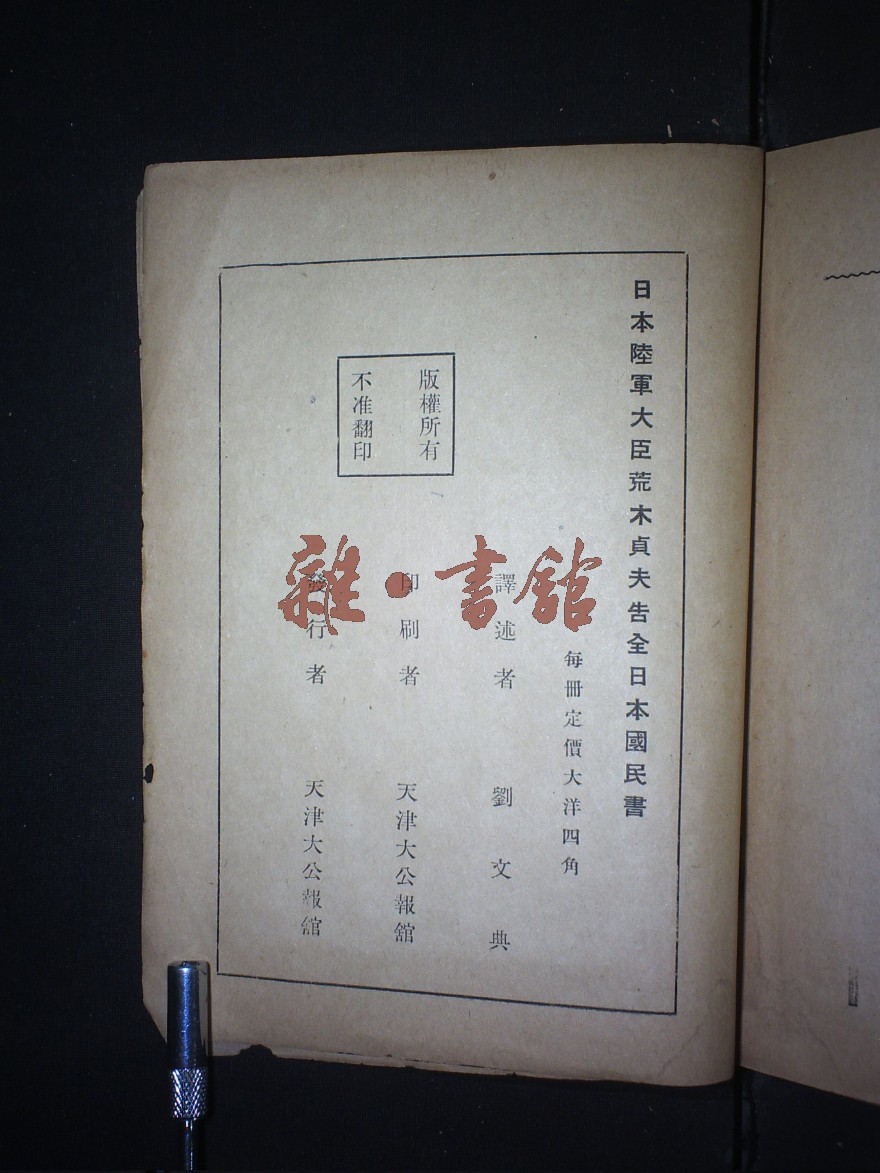 日本陸軍大臣荒木貞夫告全日本國民書
每冊定價大洋四角
譯述者 劉文典
版權所有
不准翻印
印刷者 天津大公報館
發行者 天津大公報館
雜·書館